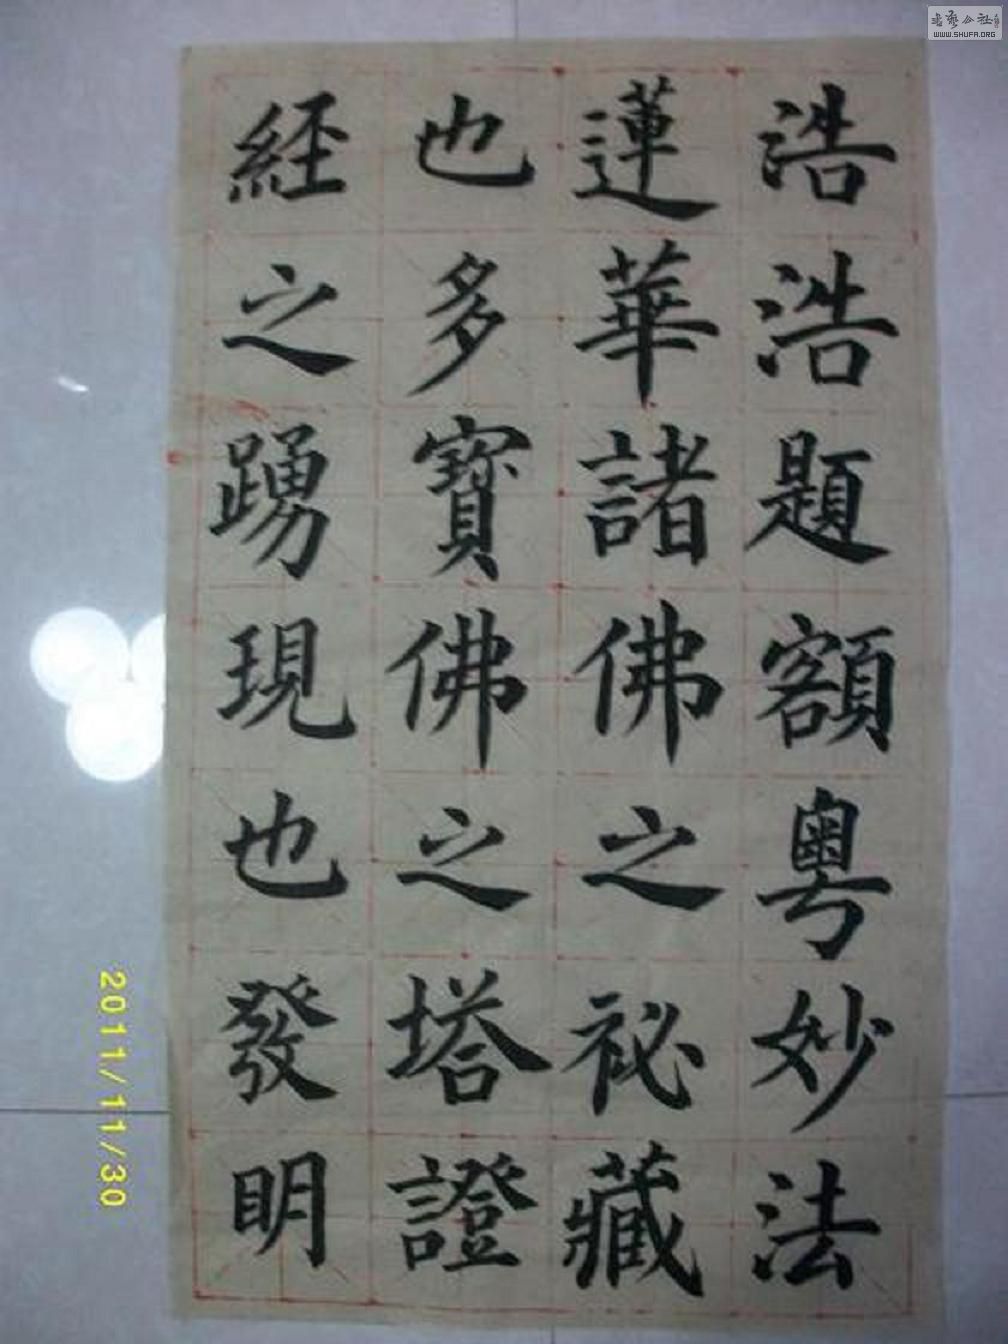 浩浩題額粵妙法
蓮華諸佛之祕藏
也多寶佛之塔證
經之踴現也發明
2011/11/30
书艺公社
WWW.SHUFA.ORG